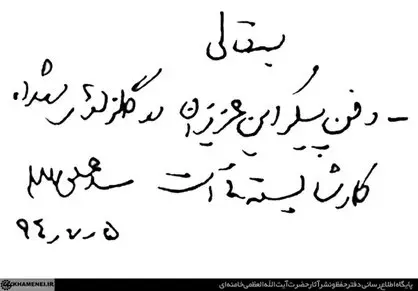 بسمه تعالی
- دفن پیکر این عزیزان در گلزار شهداء
کار شایسته‌ای است سید علی خامنه‌ای
۹۴٫۷٫۵
KHAMENEI.IR
پایگاه اطلاع رسانی دفتر حفظ و نشر آثار حضرت آیت الله العظمی خامنه‌ای